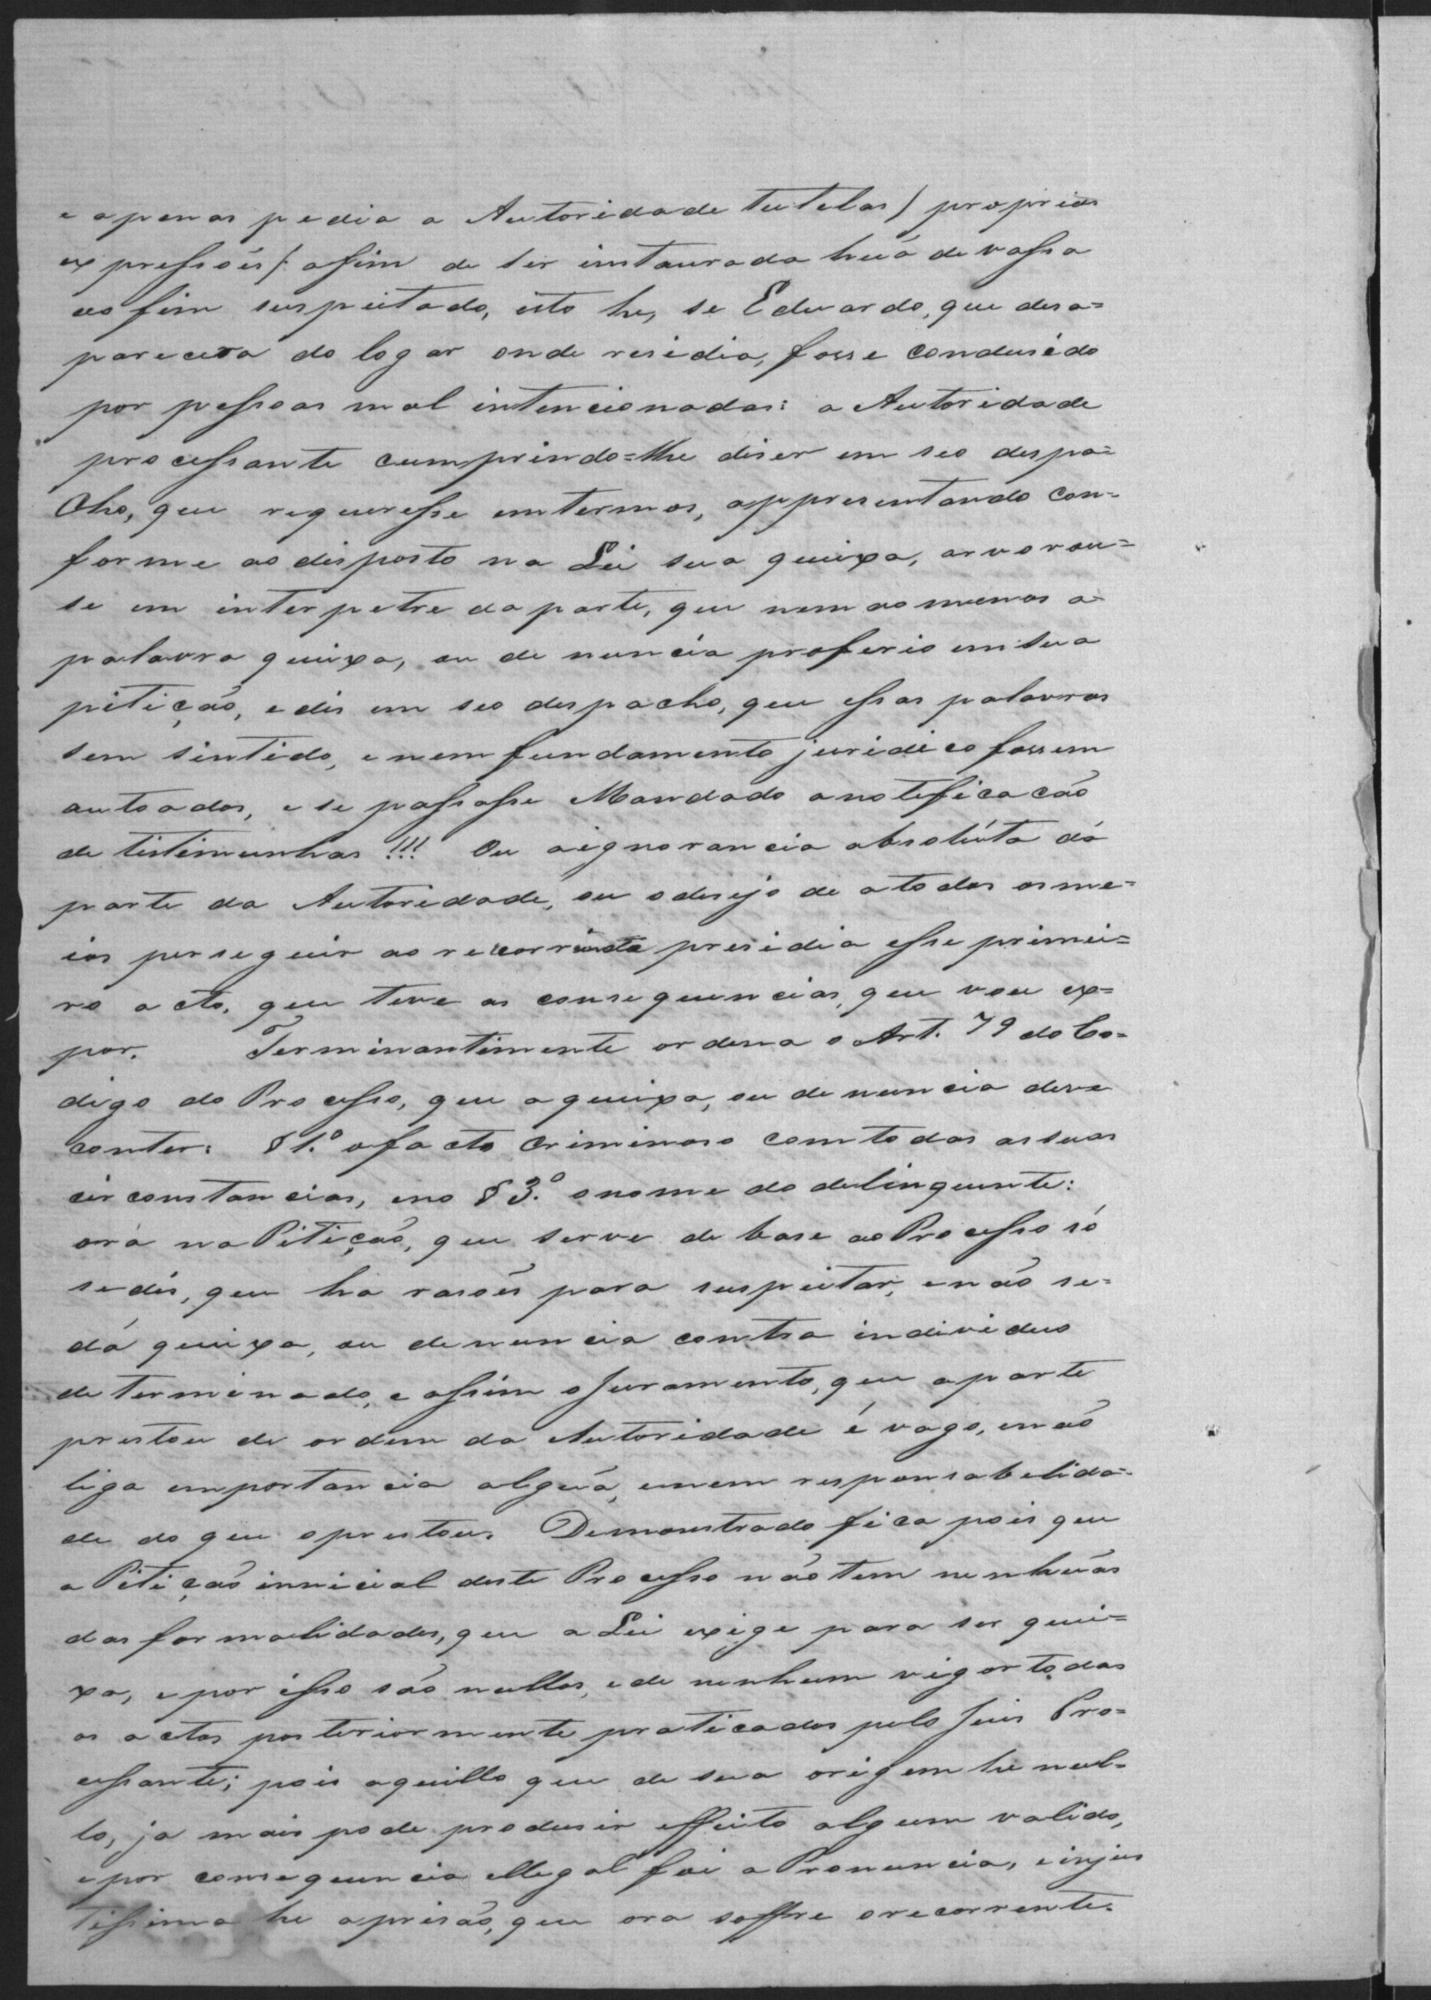 e apenas pedia a Autoridade tutelar / proprias
expressões /: afim de ser instaurada huã devassa
ao fim suspeitado, isto he, se Eduardo, que desa=
parecera do logar onde residia, fosse condusido
por pessoas mal intencionadas: a Autoridade
processante cumprindo=lhe diser em seo despa=
cho, que requeresse em termos, appresentando con=
forme ao disposto na Lei sua queixa, arvorou=
se em interpetre da parte, que nem ao menos a
palavra queixa, ou denuncia proferio em sua
pitição, e dis em seo despacho, que essas palavras
sem sintido, e nem fundamento juridico fossem
autoadas, e se passasse Mandado a notificação
de tistimunhas!!! Ou a ignorancia absoluta dá
parte da Autoridade, ou o desejo de a todos os me=
ios perseguir ao recorrente presidia esse primei=
ro acto, que teve as consequencias, que vou ex=
por. Terminantimente ordena o Art. 79 do Co=
digo do Processo, que a queixa, ou denuncia deve
conter: § 1.º o facto criminoso com todas as suas
circonstancias, e no § 3.º o nome do delinquente:
ora na Pitição, que serve de base ao Processo só
se dis, que ha rasões para suspeitar, e não se=
dá queixa, ou denuncia contra individuo
determinado, e assim o juramento, que a parte
prestou de ordem da Autoridade é vago, e não
liga importancia alguã, e nem responsabelida=
de do que o prestou. Demonstrado fica pois que
a Pitição innicial deste Processo não tem nenhuãs
das formalidades, que a Lei exige para ser quei=
xa, e por isso são nullos, e de nenhum vigor todos
os actos posteriormente praticados pelo Juis Pro=
cessante; pois aquillo que de sua origem he nul=
lo, ja mais pode produsir effeito algum valido,
e por consequencia illegal foi a Pronuncia, e injus
tissima he a prisão, que ora soffre o recorrente.